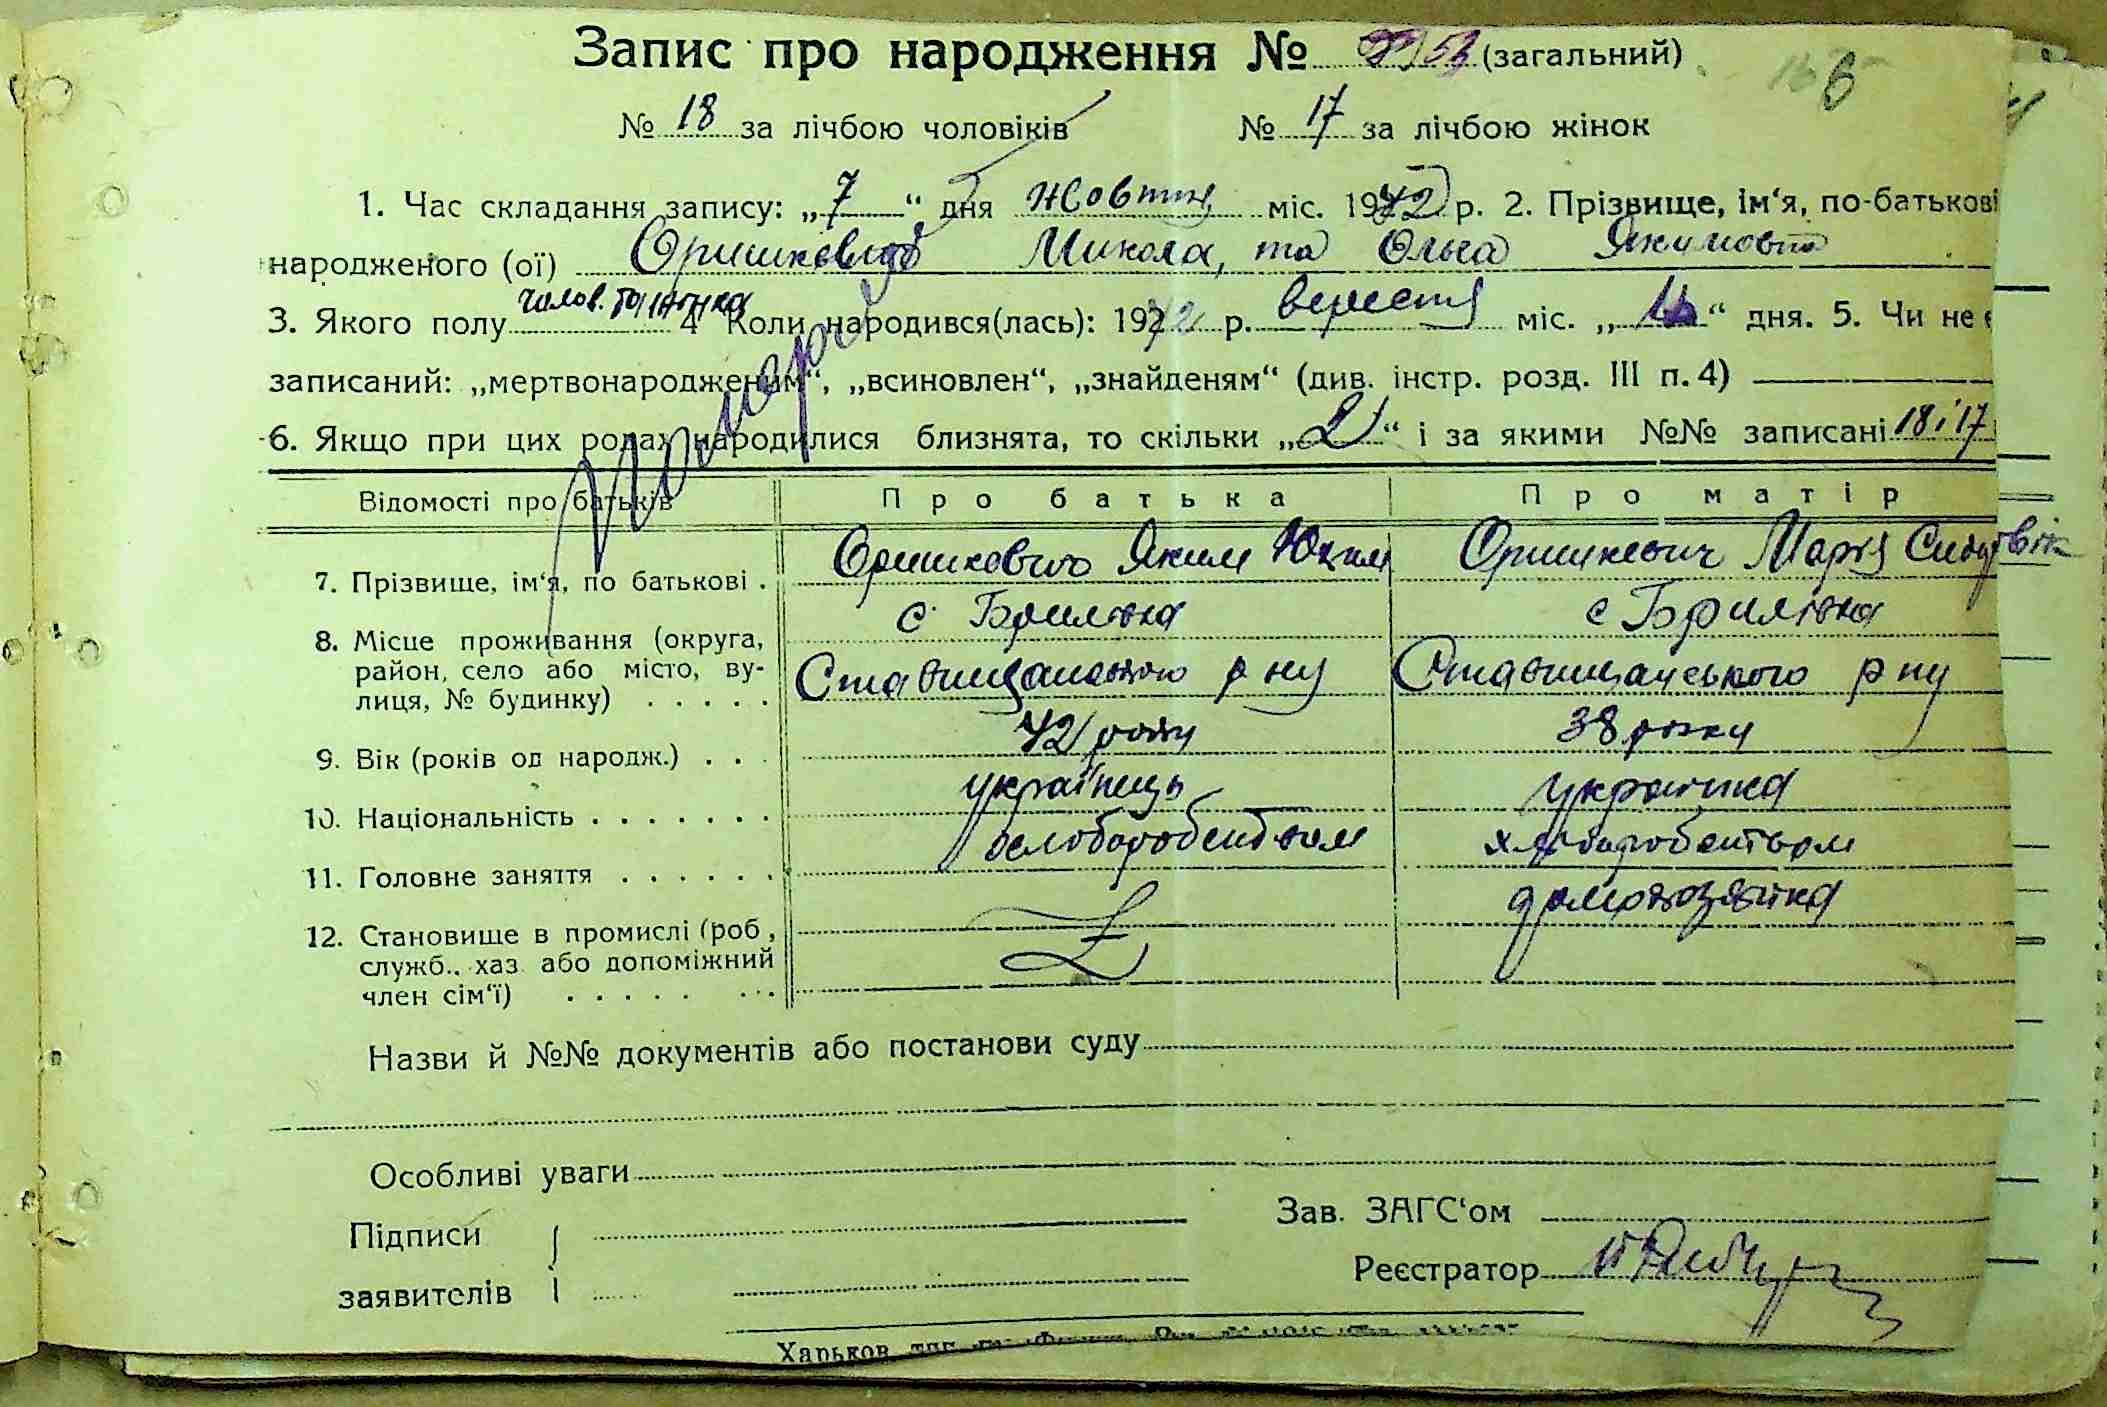 Запис про народження № (загальний)
№ 18 за лічбою чоловіків № 17 за лічбою жінок
1. Час складання запису: „7“ дня жовтня міс. 1942 р. 2. Прізвище, ім‘я, по-батькові
народженого (ої) Оришкевич Микола, та Ольга Якимовна
3. Якого полу 4 Коли народився(лась): 1942 р. вересня міс. „ “ дня. 5. Чи не є
записаний: „мертвонародженим“, „всиновлен“, „знайденям“ (див. інстр. розд. III п. 4)
6. Якщо при цих родах народилися близнята, то скільки „2“ і за якими №№ записані 18 і 17
Відомості про батьків Про батька Про матір
7. Прізвище, ім‘я, по батькові . Оришкович Яким Оришкевич Марія
8. Місце проживання (округа, район, село або місто, вулиця, № будинку) . . . . . с Брилівка с Брилівка
Ставищанського р ну Ставищанського р ну
9. Вік (років од народж.) . . . 42 роки 38 роки
10. Національність . . . . . . . українець українка
11. Головне заняття . . . . . . хлеборобством
12. Становище в промислі (роб, служб., хаз. або допоміжний член сім‘ї) . . . . . . . . домохозяйка
Назви й №№ документів або постанови суду
Особливі уваги
Підписи
заявителів
Зав. ЗАГС‘ом
Реєстратор
Харьков